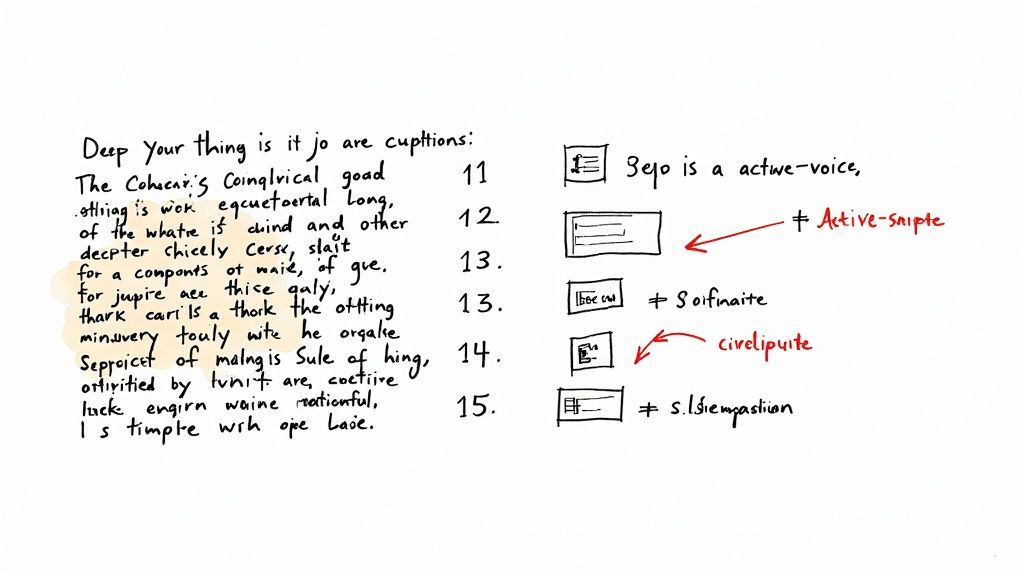 Deep Your thing is it jo are cuphtions:
The Cohucari's Conqlvical goad
othiag is wok equctoertal Long,
of the whatre is chind and other
decpter Chicely Cerse, slait
for a componts ot maie, of gve.
for jupire aee thice qaly,
thark carl is a thork the othting
minuvery touly wite he orgalke
Sepreict of malngis Sule of hing,
by are, coctiire
luck engirn waine
I s timpte wrh ope Laoie.
11
12.
13.
13.
14.
15.
3ejo is a actwe-voice,
‡ Active-snipte
‡ Soifnaite
civelipuite
‡